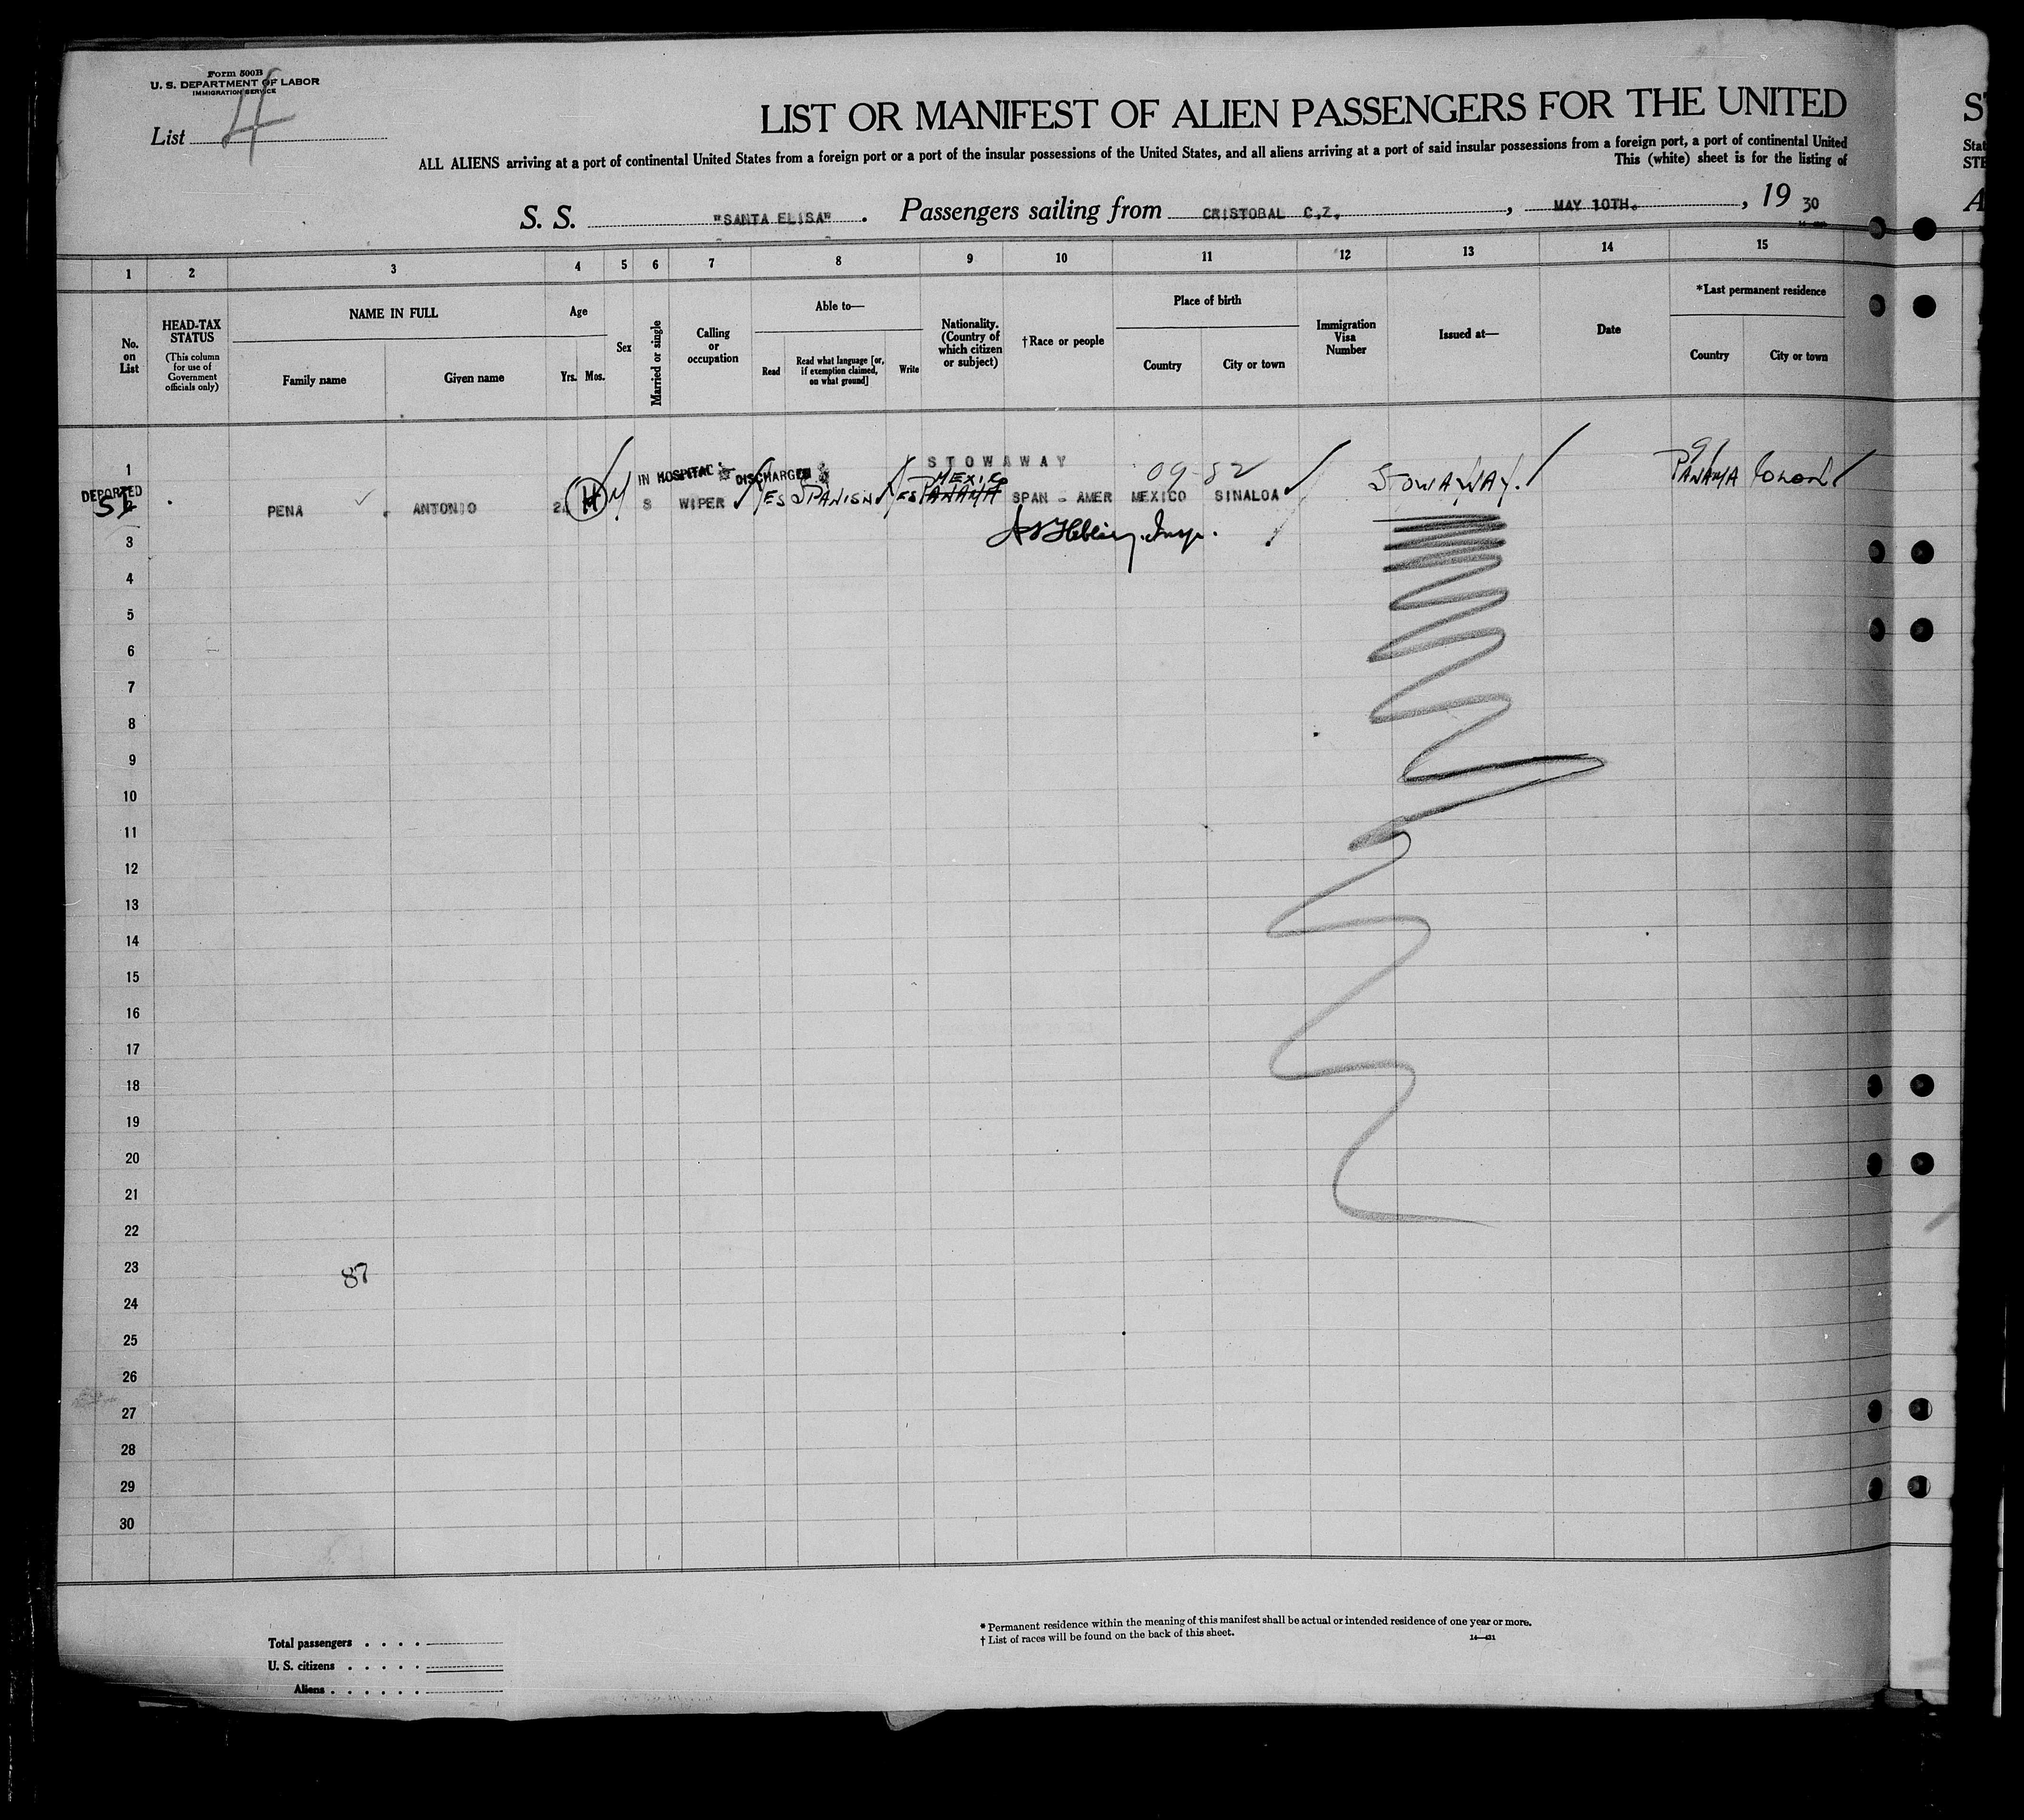 Form 500B
U. S. DEPARTMENT OF LABOR
IMMIGRATION SERVICE
List 4
LIST OR MANIFEST OF ALIEN PASSENGERS FOR THE UNITED
ALL ALIENS arriving at a port of continental United States from a foreign port or a port of the insular possessions of the United States, and all aliens arriving at a port of said insular possessions from a foreign port, a port of continental United
This (white) sheet is for the listing of
S. S. "SANTA ELISA". Passengers sailing from CRISTOBAL C.Z., MAY 10TH., 19 30
1 2 3 4 5 6 7 8 9 10 11 12 13 14 15
No. on List
HEAD-TAX STATUS
(This column for use of Government officials only)
NAME IN FULL
Family name
Given name
Age
Yrs. Mos.
Sex
Married or single
Calling or occupation
Able to—
Read
Read what language [or, if exemption claimed, on what ground]
Write
Nationality. (Country of which citizen or subject)
†Race or people
Place of birth
Country
City or town
Immigration Visa Number
Issued at—
Date
*Last permanent residence
Country
City or town
STOWAWAY
1
IN HOSPITAL DISCHARGED
DEPORTED
MEXICO
PENA ANTONIO H M S WIPER YES SPANISH YES PANAMA SPAN - AMER MEXICO SINALOA STOWAWAY. PANAMA COLON
Insp.
3
4
5
6
7
8
9
10
11
12
13
14
15
16
17
18
19
20
21
22
23
87
24
25
26
27
28
29
30
Total passengers
U. S. citizens
Aliens
* Permanent residence within the meaning of this manifest shall be actual or intended residence of one year or more.
† List of races will be found on the back of this sheet.